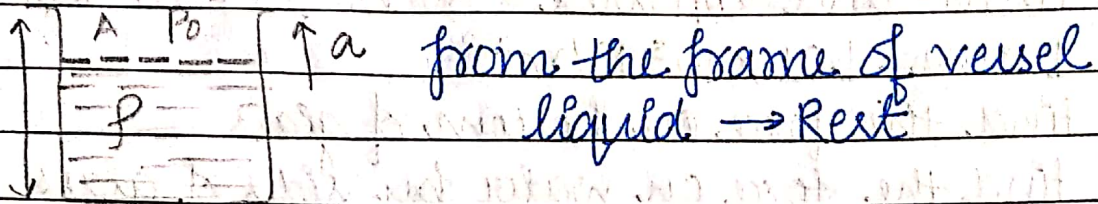 A P₀
a from the frame of vessel
ρ liquid → Rest